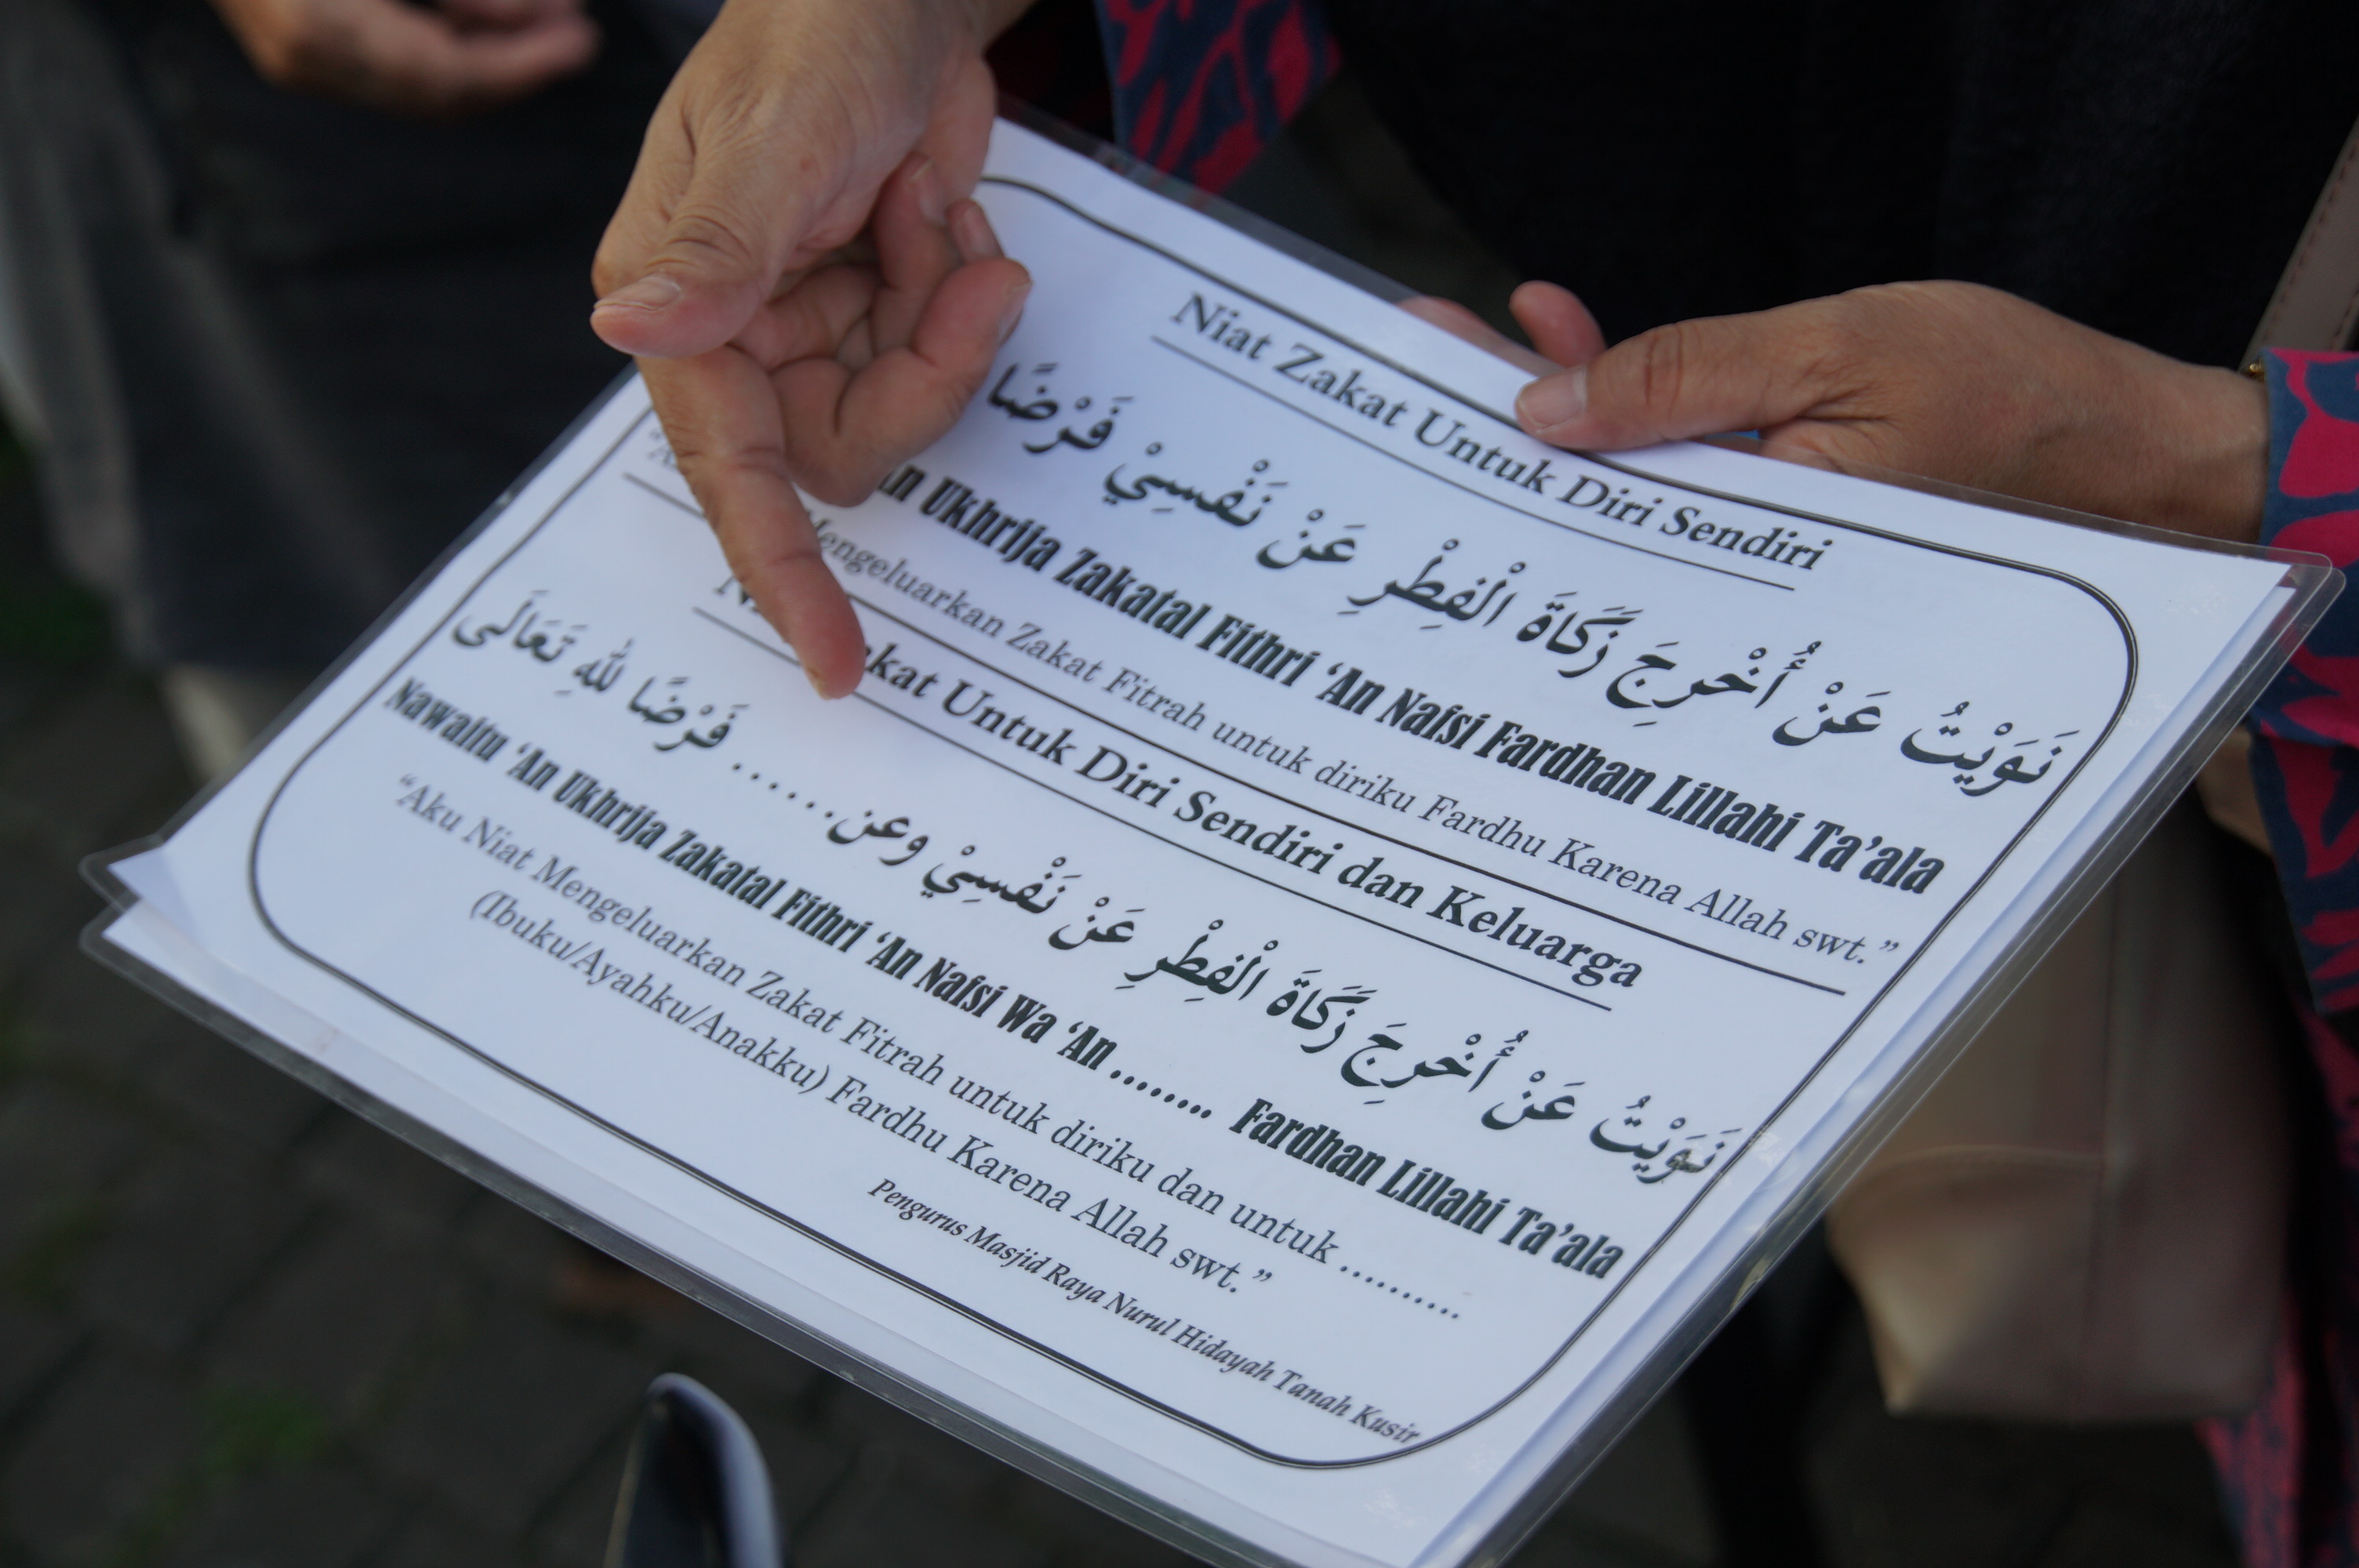 Niat Zakat Untuk Diri Sendiri
نَوَيْتُ عَنْ أُخْرِجَ زَكَاةَ الْفِطْرِ عَنْ نَفْسِيْ فَرْضًا
An Ukhrija Zakatal Fithri ‘An Nafsi Fardhan Lillahi Ta’ala
Mengeluarkan Zakat Fitrah untuk diriku Fardhu Karena Allah swt.”
Untuk Diri Sendiri dan Keluarga
نَوَيْتُ عَنْ أُخْرِجَ زَكَاةَ الْفِطْرِ عَنْ نَفْسِيْ وعن....... فَرْضًا لِلّٰهِ تَعَالَى
Nawaitu ‘An Ukhrija Zakatal Fithri ‘An Nafsi Wa ‘An ........ Fardhan Lillahi Ta’ala
“Aku Niat Mengeluarkan Zakat Fitrah untuk diriku dan untuk ..........
(Ibuku/Ayahku/Anakku) Fardhu Karena Allah swt.”
Pengurus Masjid Raya Nurul Hidayah Tanah Kusir